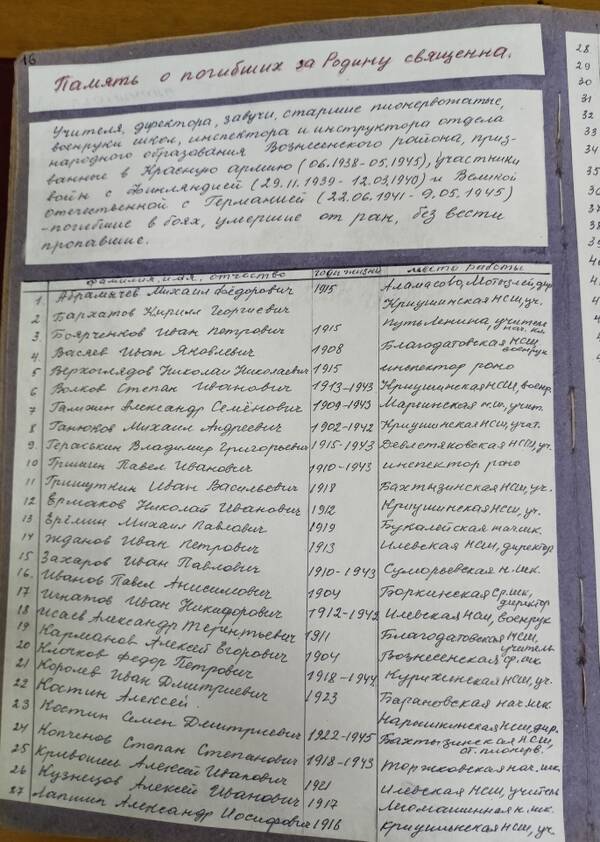 16
Память о погибших за Родину священна.
Учителя, директора, завучи, старшие пионервожатые,
военруки школ, инспектора и инструктора отдела
народного образования Вознесенского района, приз-
ванные в Красную армию (06.1938-05.1945), участники
войн с Финляндией (29.11.1939-12.03.1940) и Великой
отечественной с Германией (22.06.1941-9.05.1945)
-погибшие в боях, умершие от ран, без вести
пропавшие.
фамилия, имя, отчество годы жизни место работы
1. Абрамычев Михаил Фёдорович 1915 Аламасово,
2 Бархатов Кирилл Георгиевич Криушинская НСШ, уч.
3. Боярченков Иван Петрович 1915 Путь Ленина, учитель нач. кл.
4. Васяев Иван Яковлевич 1908 Благодатовская НСШ, военрук
5 Верхоглядов Николай Николаевич 1915 инспектор роно
6 Волков Степан Иванович 1913-1943 Криушинская НСШ, военр.
7 Александр Семёнович 1909-1943 учит.
8 Ганюков Михаил Андреевич 1902-1942 Криушинская НСШ, учит.
9. Гераськин Владимир Григорьевич 1915-1943 Девлетяковская НСШ, уч.
10 Гришин Павел Иванович 1910-1943 инспектор роно
11 Гришуткин Иван Васильевич 1918 Бахтызинская НСШ, уч.
12 Ермаков Николай Иванович 1912 Криушинская НСШ, уч.
13 Ерёмин Михаил Павлович 1919 Букалейская нач.шк.
14 Жданов Иван Петрович 1913 Илевская НСШ, директор
15 Захаров Иван Павлович 1910-1943 Суморьевская н.шк.
16. Иванов Павел Анисимович 1904 Боркинская ср.шк, директор
17 Игнатов Иван Никифорович 1912-1942 Илевская НСШ, военрук
18 Исаев Александр Терентьевич 1911 Благодатовская НСШ, учитель
19 Карманов Алексей Егорович 1904 Вознесенская ср.шк
20 Клочков Федор Петрович 1918-1944 Курихинская НСШ, уч.
21 Королев Иван Дмитриевич 1923 Барановская нач.шк.
22 Костин Алексей Нарышкинская НСШ, дир.
23 Костин Семен Дмитриевич 1922-1945 Бахтызинская НСШ, ст. пионерв.
24 Копченов Степан Степанович 1918-1943 Торжковская нач. шк.
25 Кривошеи Алексей Иванович 1921 Илевская НСШ, учитель
26 Кузнецов Алексей Иванович 1917 Лесомашинная н. шк.
27 Лапшин Александр Иосифович 1916 Криушинская НСШ, уч.
28
29
30
31
32
33
34